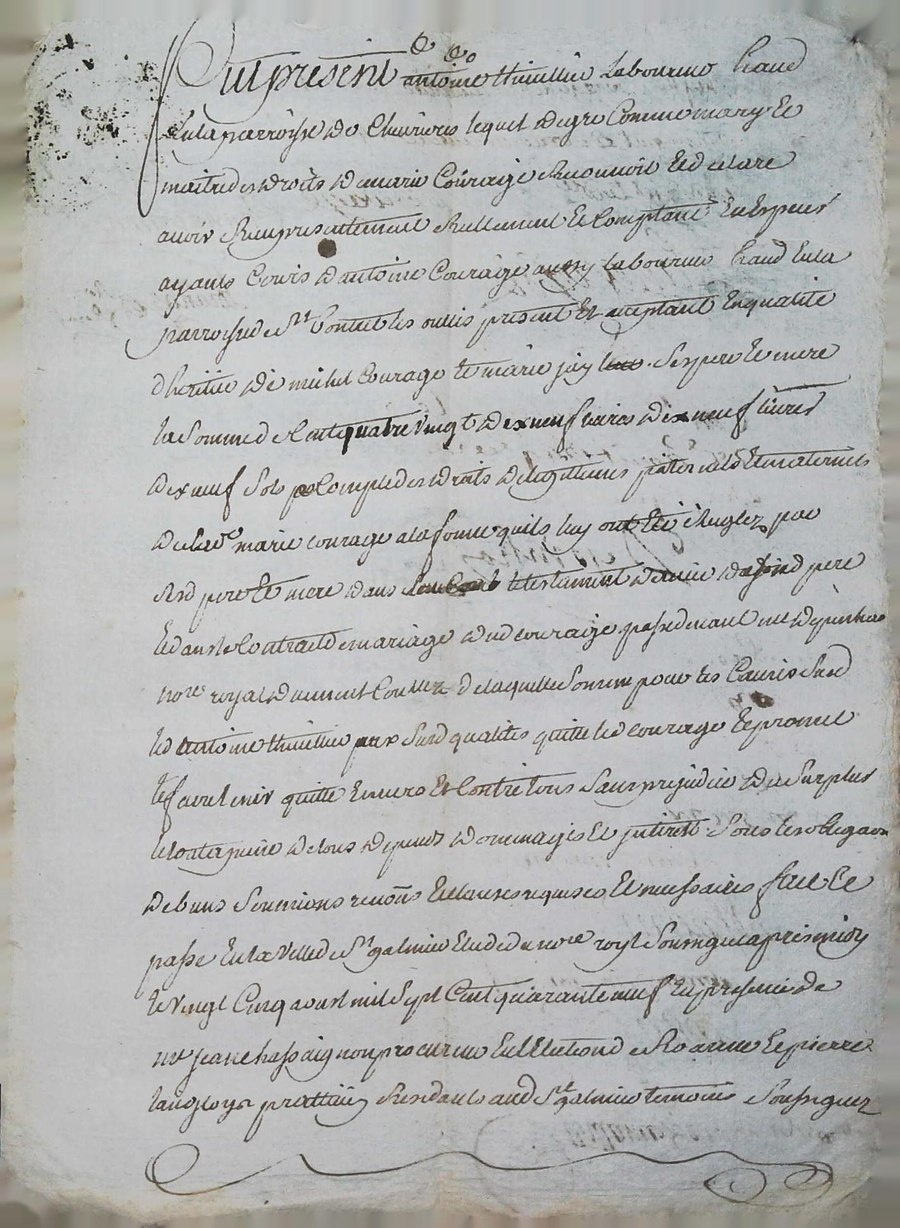 Fut present antoine thuillier Laboureur habd
En la parroisse De Chevrieres lequel De gre Comme mary Et
maitre des Droits De marie Courage Reconnoit Et declare
avoir Reeu presentement Reellement Et Comptant En Especes
ayants Cours D'antoine Courage aussy Laboureur habd En la
parroisse de St les oullies present Et acceptant En qualité
D'heritier De michel Courage Et marie jay Ses pere Et mere
La Somme de Cent quatre vingt Dix neuf livres Dix neuf livres
Dix neuf Sols p Compte des Droits De legitimes paternels Et maternels
De lad marie courage a la forme quils luy ont Eté
par
Sesd pere Et mere dans le testament De Sond pere
Et dans le Contrat de mariage Dud courage passe devant me
nore royal De laquelle Somme pour les Causes Susd
led antoine thuillier aux Susd qualités quitte led courage Et promet
le faire tenir quitte Envers Et Contre tous Sans prejudice Du Surplus
Et a peine De tous Depends Dommages Et interets Sous les obligaon
De biens Soumions renons Et clauses requises Et necessaires fait Et
passe En la ville de St galmier Etude du nore royl Soussigne apres midy
le vingt Cinq aoust mil Sept Cent quarante neuf En presence de
me jean chassaignon procureur En l'Election de Roanne Et pierre
langloys praticien Residants aud St galmier temoins Soussignez